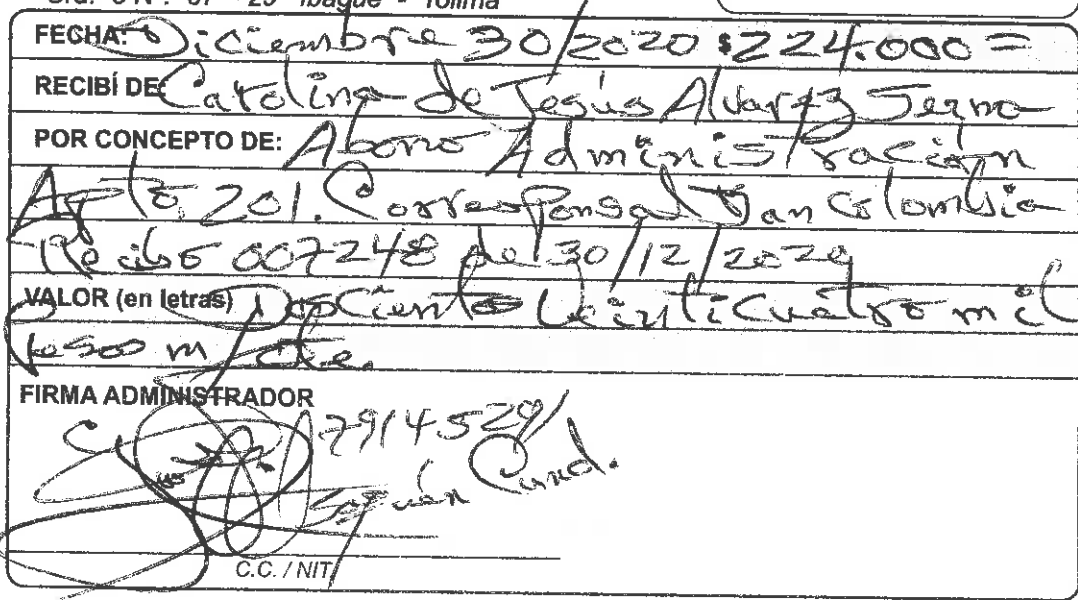 Ibagué - Tolima
FECHA: Diciembre 30/2020 $224.000=
RECIBÍ DE: Carolina de Jesús Alvarez Serna
POR CONCEPTO DE: Abono Administración
Apto. 201. Corresponsal Bancolombia
Recibo 007248 del 30/12/2020
VALOR (en letras) Doscientos Veinticuatro mil
pesos m/cte.
FIRMA ADMINISTRADOR
Cund.
C.C. / NIT